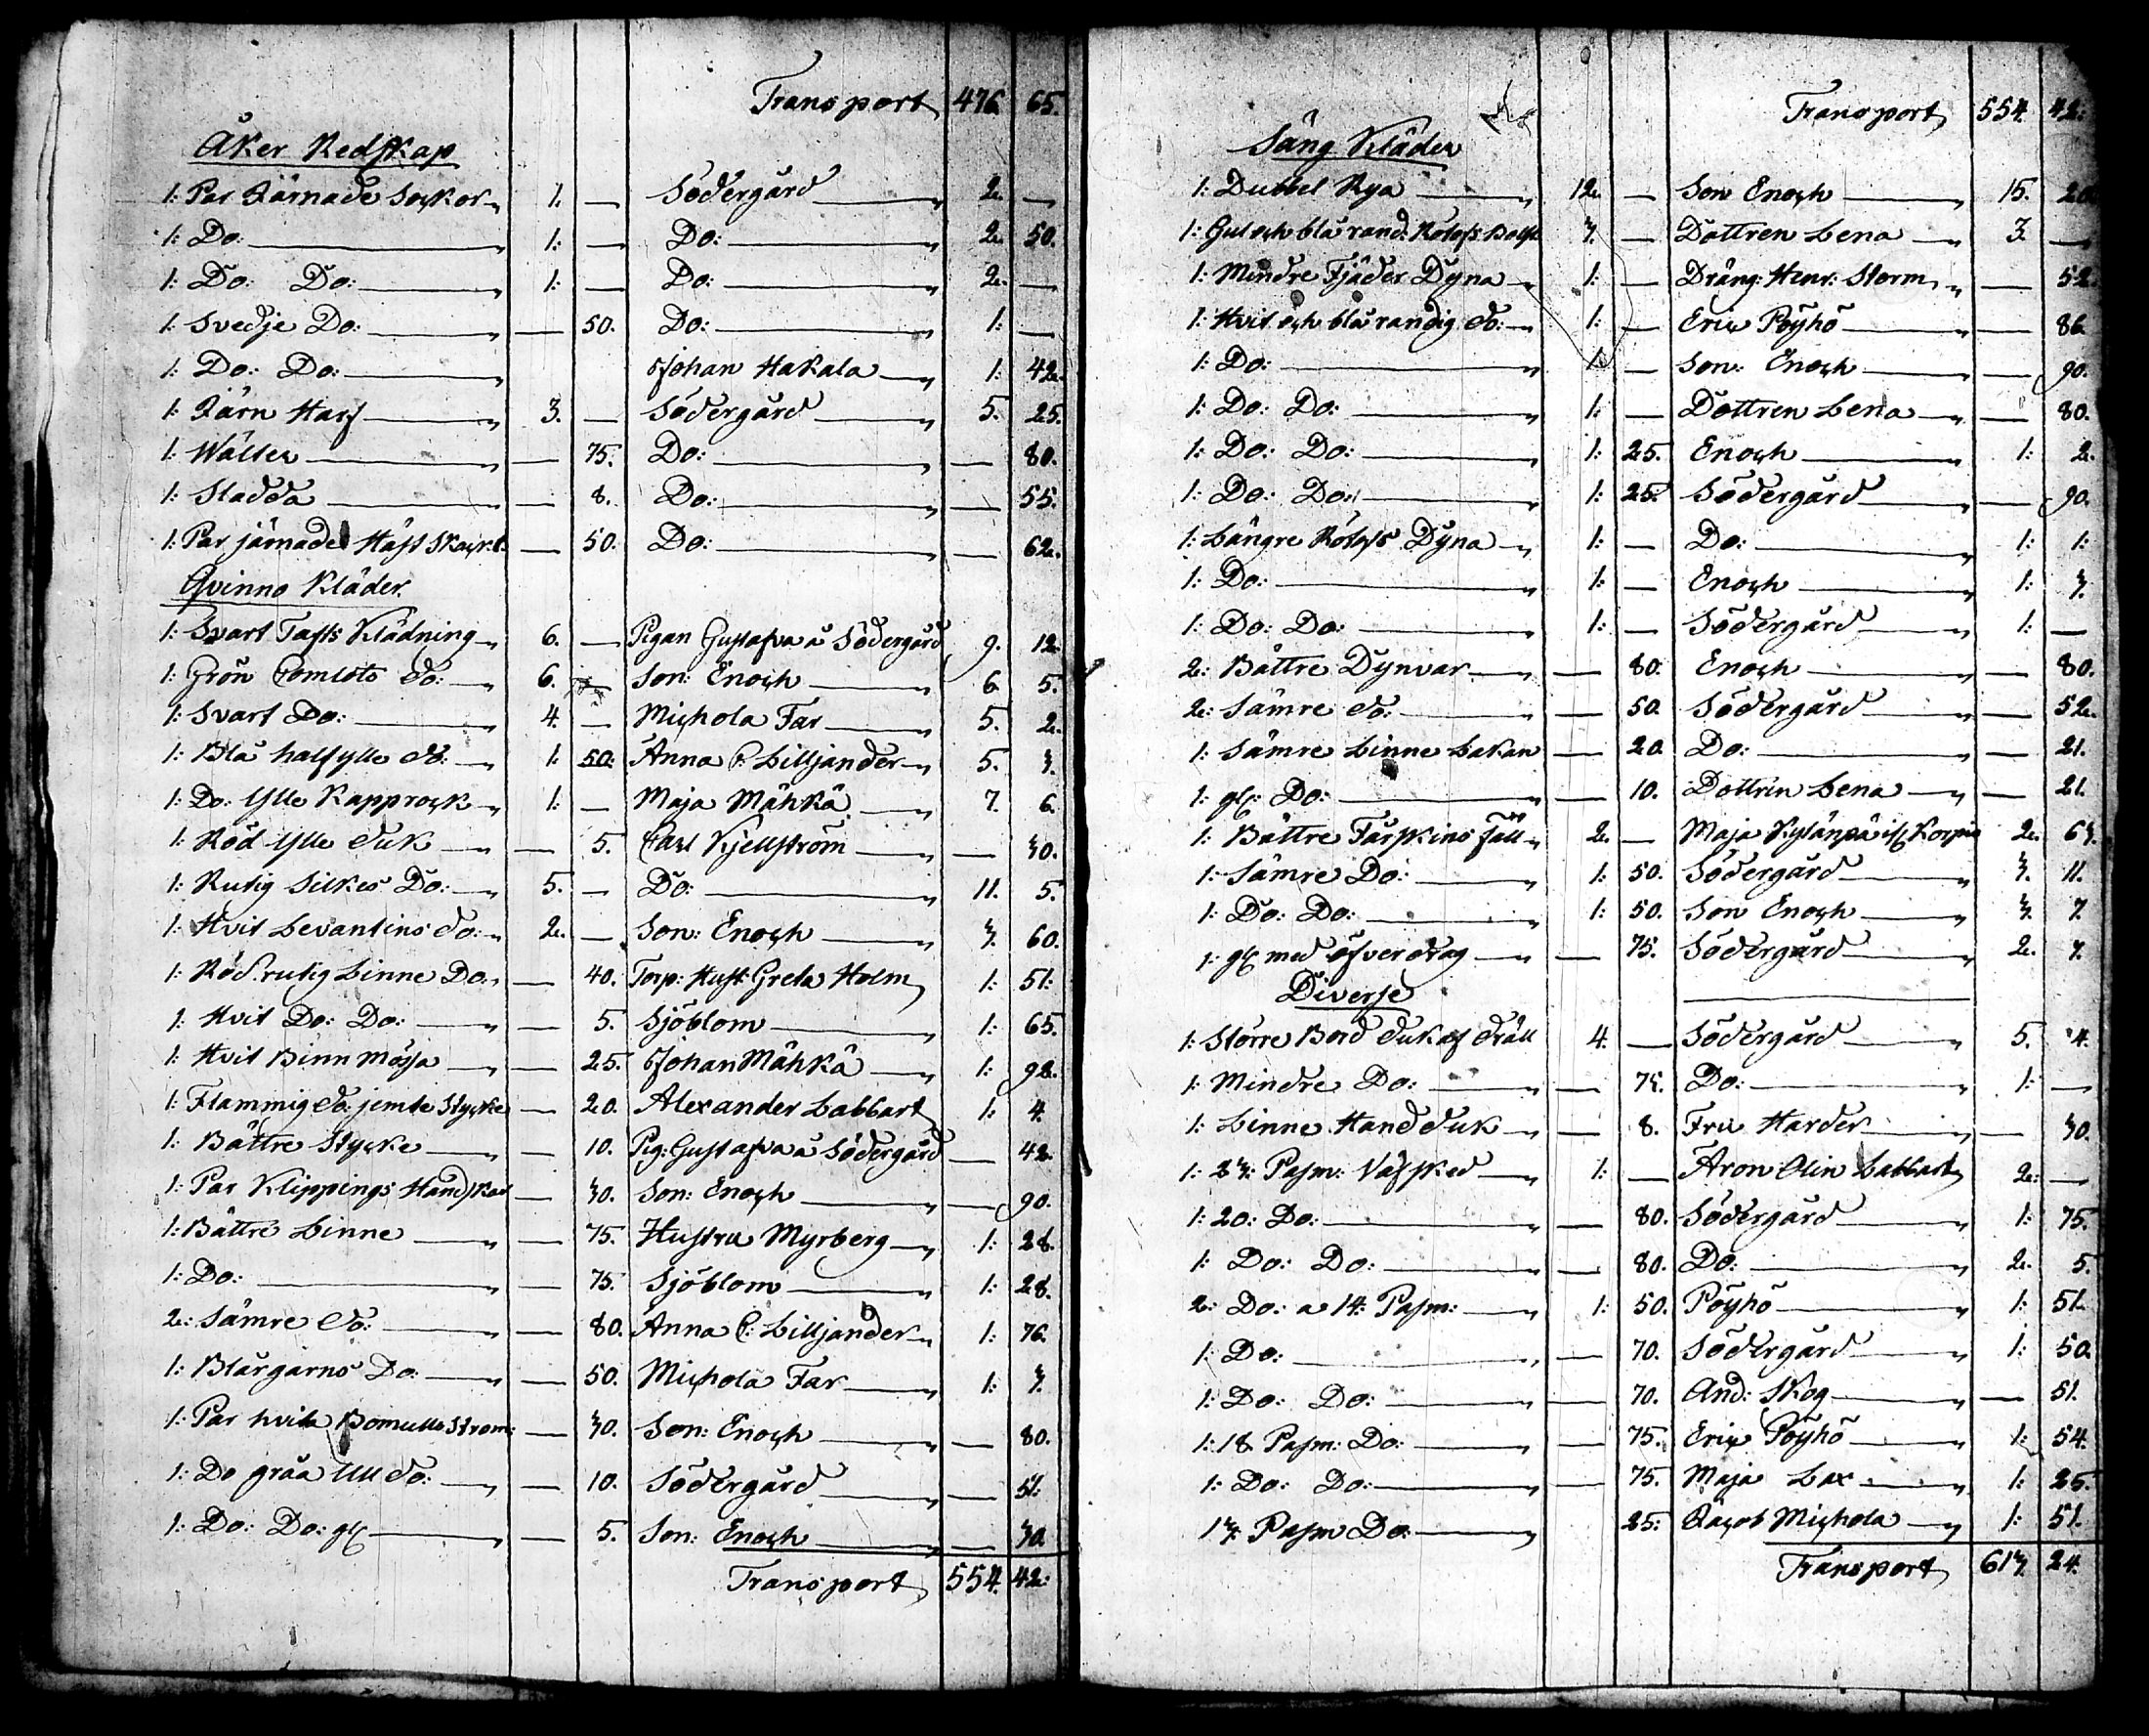 Transport 476. 65.
Åker Redskap
1: Par Järnade Sockor 1. — Södergård 2. —
1: Do: 1: — Do: 2. 50.
1: Do: Do: 1: — Do: 2. —
1: Svedje Do: — 50. Do: 1: —
1: Do: Do: Johan Hakala 1: 42.
1: Järn Harf 3. — Södergård 5. 25.
1: Wälter — 75. Do: — 80.
1: Sladda — 8. Do: — 55.
1: Par järnade Häst — 50. Do: — 62.
Qvinno Kläder
1: Svart Tafts Klädning 6. — Pigan Gustafva å Södergård 9. 12.
1: Grön Comlots do: 6. — Son: Enoch 6 5.
1: Svart Do: 4. — Michola Far 5. 2.
1: Blå halfylle do: 1: 50: Anna C: Lilljander 5. 3.
1: Do: Ylle Kapprock 1: — Maja Mähkä 7. 6.
1: Röd Ylle duk — 5. Carl Kjellström — 30.
1: Rutig Silkes Do: 5. — Do: 11. 5.
1: Hvit Levantins do: 2. — Son: Enoch 3. 60.
1: Röd rutig Linne Do: — 40. Torp: Hust: Greta Holm 1: 51:
1: Hvit Do: Do: — 5. Sjöblom 1: 65.
1: Hvit Binn Mössa — 25. Johan Mähkä 1: 92.
1: Flammig do: jemte Stycke — 20. Alexander Labbart 1: 4.
1: Bättre Stycke — 10. Pig: Gustafva å Södergård — 42.
1: Par Klippings Handskar — 30. Son: Enoch — 90.
1: Bättre Linne — 75. Hustru Myrberg 1: 28.
1: Do: — 75. Sjöblom 1: 28.
2: Sämre do: — 80. Anna C: Lilljander 1: 76.
1: Blårgarns Do: — 50. Michola Far 1: 3.
1: Par hvita Bomulls Strom: — 30. Son: Enoch — 80.
1: Do gråa Ull do: — 10. Södergård — 51.
1: Do: Do: gl: — 5. Son: Enoch — 30.
Transport 554. 42:
Transport 554. 42:
Säng Kläder
1: Dubbel Rya 12. — Son Enoch 15. 20.
1: Gul och blå rand: 3. — Dottren Lena 3. —
1: Mindre Fjäder Dyna 1: — Dräng: Henr: Storm — 52.
1: Hvit och blå randig do: 1: — Eric Pöyhö — 86.
1: Do: 1: — Son: Enoch — 90.
1: Do: Do: 1: — Dottren Lena — 80.
1: Do: Do: 1: 25. Enoch 1: 2.
1: Do: Do: 1: 25: Södergård — 90.
1: Längre Dyna 1: — Do: 1: 1:
1: Do: 1: — Enoch 1: 3.
1: Do: Do: 1: — Södergård 1: —
2: Bättre Dynvar — 80. Enoch — 80.
2: Sämre do: — 50. Södergård — 52.
1: Sämre Linne Lakan — 20. Do: — 21.
1: gl: Do: — 10. Dottren Lena — 21.
1: Bättre Fårskins fäll 2. — Maja Kylänpä 2. 63.
1: Sämre Do: 1: 50. Södergård 3. 11.
1: Do: Do: 1: 50. Son Enoch 3. 7.
1: gl: med öfverdrag — 75. Södergård 2. 7.
Diverse
1: Större Bord duk af dräll 4. — Södergård 5. 4.
1: Mindre Do: — 75. Do: 1: —
1: Linne Handduk — 8. Fru Harder — 30.
1: 23: Pasm: Väfsked 1: — Aron Olin Labbart 2: —
1: 20: Do: — 80. Södergård 1: 75.
1: Do: Do: — 80. Do: 2. 5.
2: Do: a 14: Pasm: 1: 50. Pöyhö 1: 51.
1: Do: — 70. Södergård 1: 50.
1: Do: Do: — 70. And: Skog — 51.
1: 18 Pasm: Do: — 75. Eric Pöyhö 1: 54.
1: Do: Do: — 75. Maja Lax 1: 25.
13: Pasm Do: 25: Jacob Michola 1: 51.
Transport 613. 24.